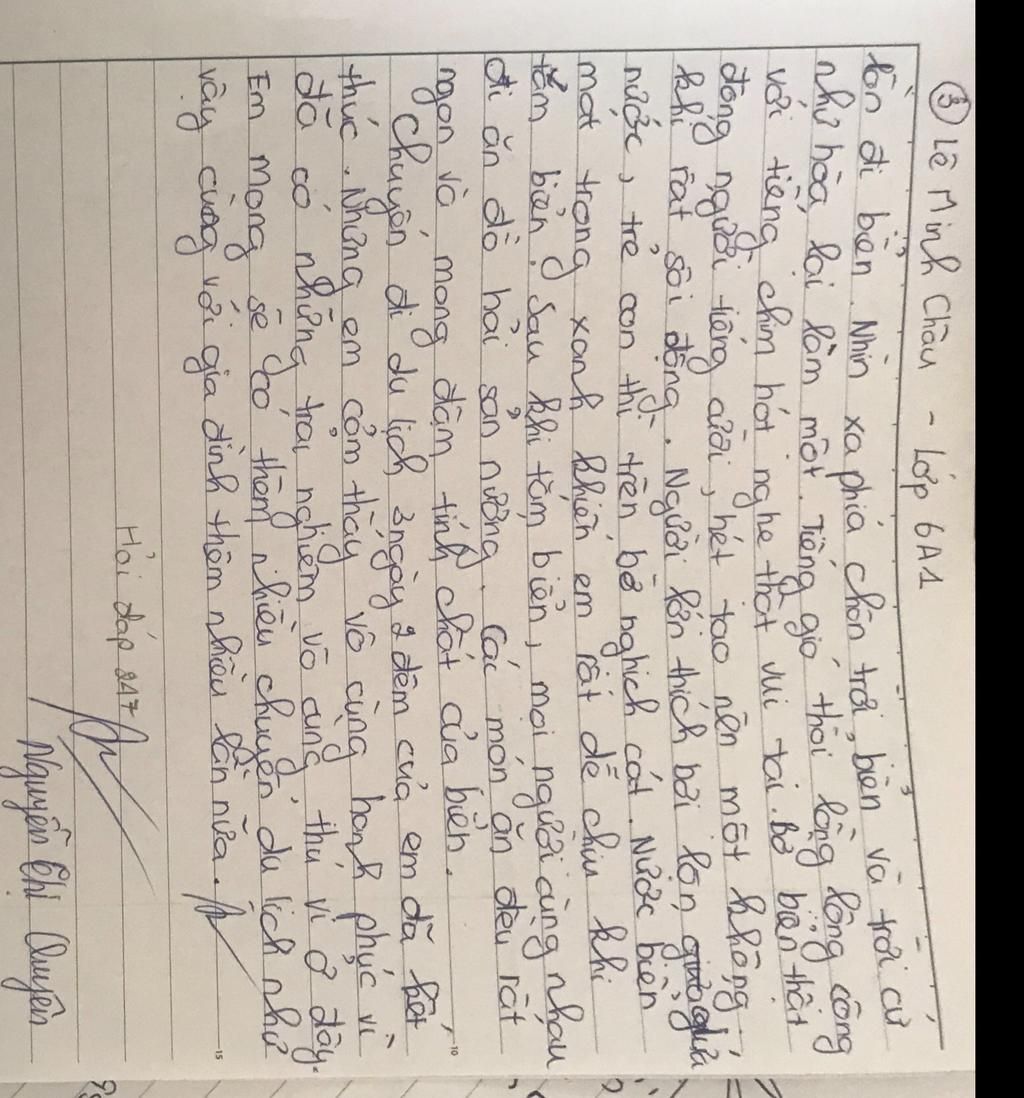 ③ Lê Minh Châu - Lớp 6A1
lần đi biển. Nhìn xa phía chân trời, biển và trời cứ
như hòa lại làm một. Tiếng gió thổi lồng lộng cộng
với tiếng chim hót nghe thật vui tai. Bờ biển thật
đông người, tiếng cười, hét tạo nên một không
khí rất sôi động. Người lớn thích bơi lặn giữa
nước, trẻ con thì trên bờ nghịch cát. Nước biển
mát trong xanh khiến em rất dễ chịu khi
tắm biển. Sau khi tắm biển, mọi người cùng nhau
đi ăn đồ hải sản nướng. Các món ăn đều rất
ngon và mang đậm tính chất của biển.
Chuyến đi du lịch 3 ngày 2 đêm của em đã kết
thúc. Nhưng em cảm thấy vô cùng hạnh phúc vì
đã có những trải nghiệm vô cùng thú vị ở đây.
Em mong sẽ có thêm nhiều chuyến du lịch như
vậy cùng với gia đình thêm nhiều lần nữa.
Hỏi đáp 247
Nguyễn Thị Duyên
10
15